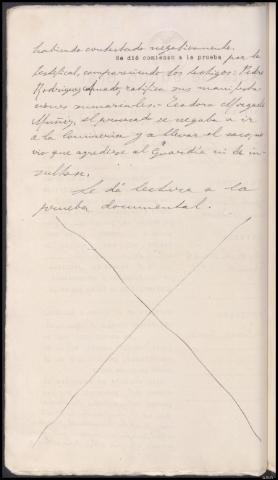 habiendo contestado negativamente.
Se dió comienzo a la prueba por la
testifical, compareciendo los testigos: Pedro
Rodriguez Amado, ratifica sus manifesta
ciones sumariales.- Teodora
Muñoz, el procesado se negaba a ir
á la Comisaria y a llevar el saco, no
vio que agrediese al Guardia ni le in-
sultase.
Se dá lectura a la
prueba documental.